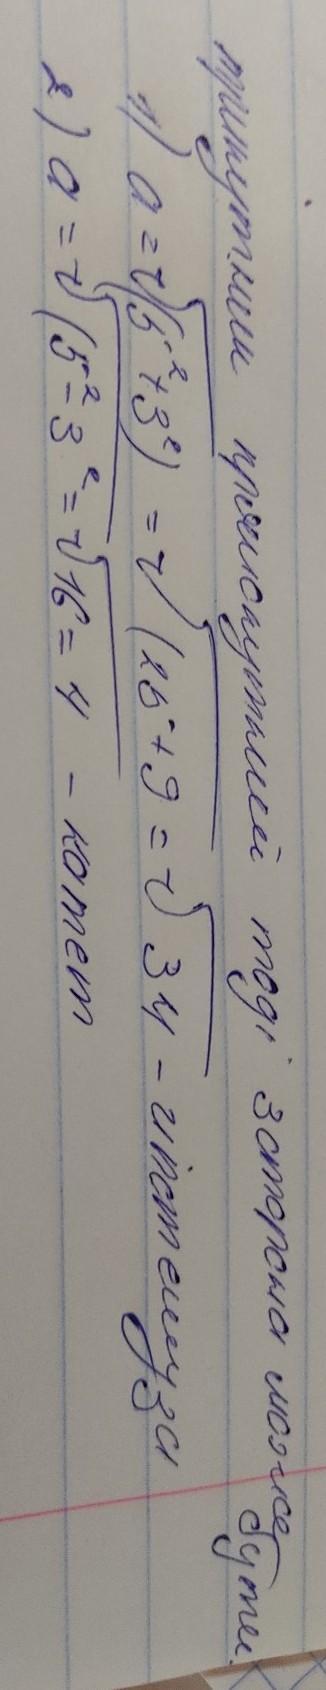 трикутник прямокутний тоді 3 сторона може бути.
1) a = √(5² + 3²) = √(25 + 9 = √34 - гіпотенуза
2) a = √(5² - 3² = √16 = 4 - катет